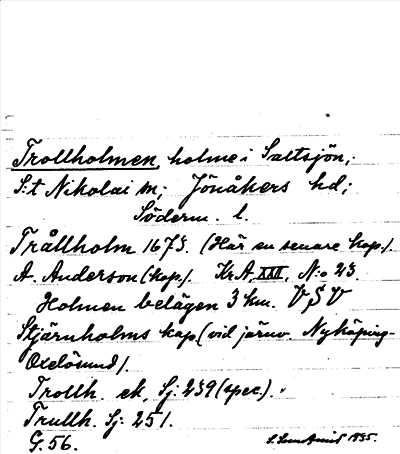 Trollholmen, holme i Saltsjön,
S:t Nikolai sn; Jönåkers hd;
Söderm. l.
Trållholm 1673. (Här en senare kop.).
A. Anderson (kop.). Kr.A. XXII, N:o 23
Holmen belägen 3 km. V S V
Stjärnholms kap (vid järnv. Nyköping-
Oxelösund).
Trollh. ek, Sj: 239 (spec.).
Trullh. Sj: 251.
G. 56.
1935.